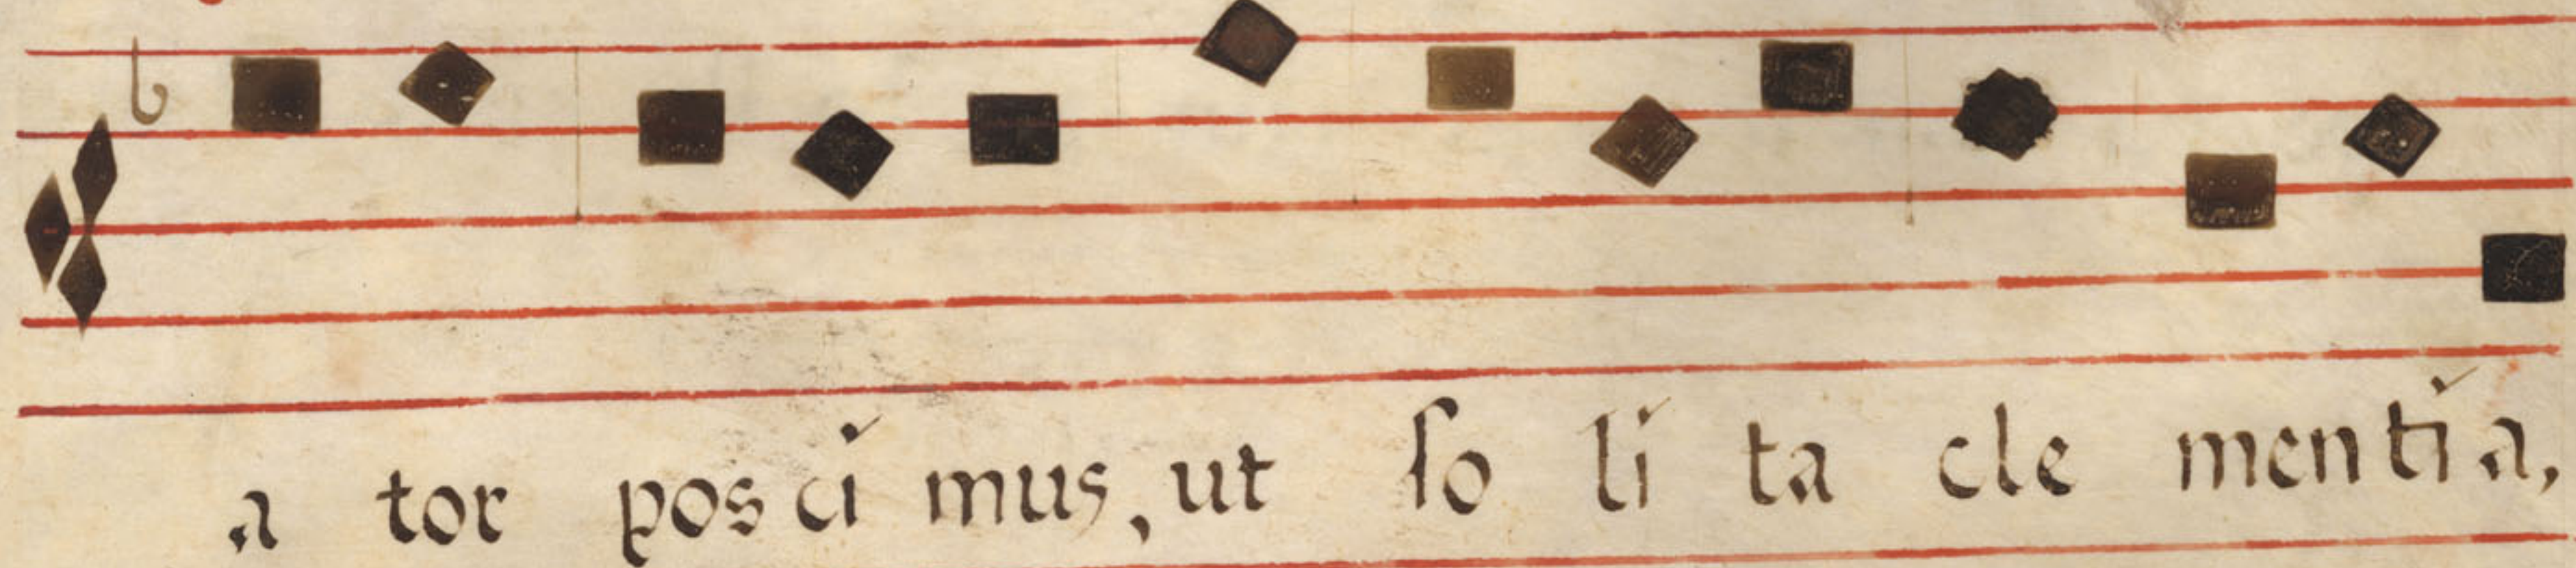 a tor pos ci mus, ut so li ta cle menti a,